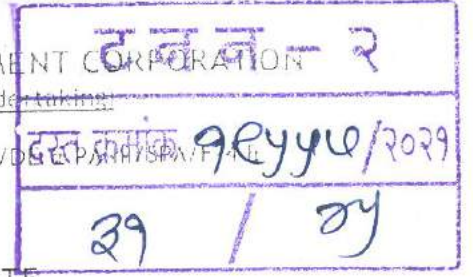 ट न न - २
ENT CORPORATION
dertaking
दस्त क्रमांक १९५५७/२०२१
३१ / ४५